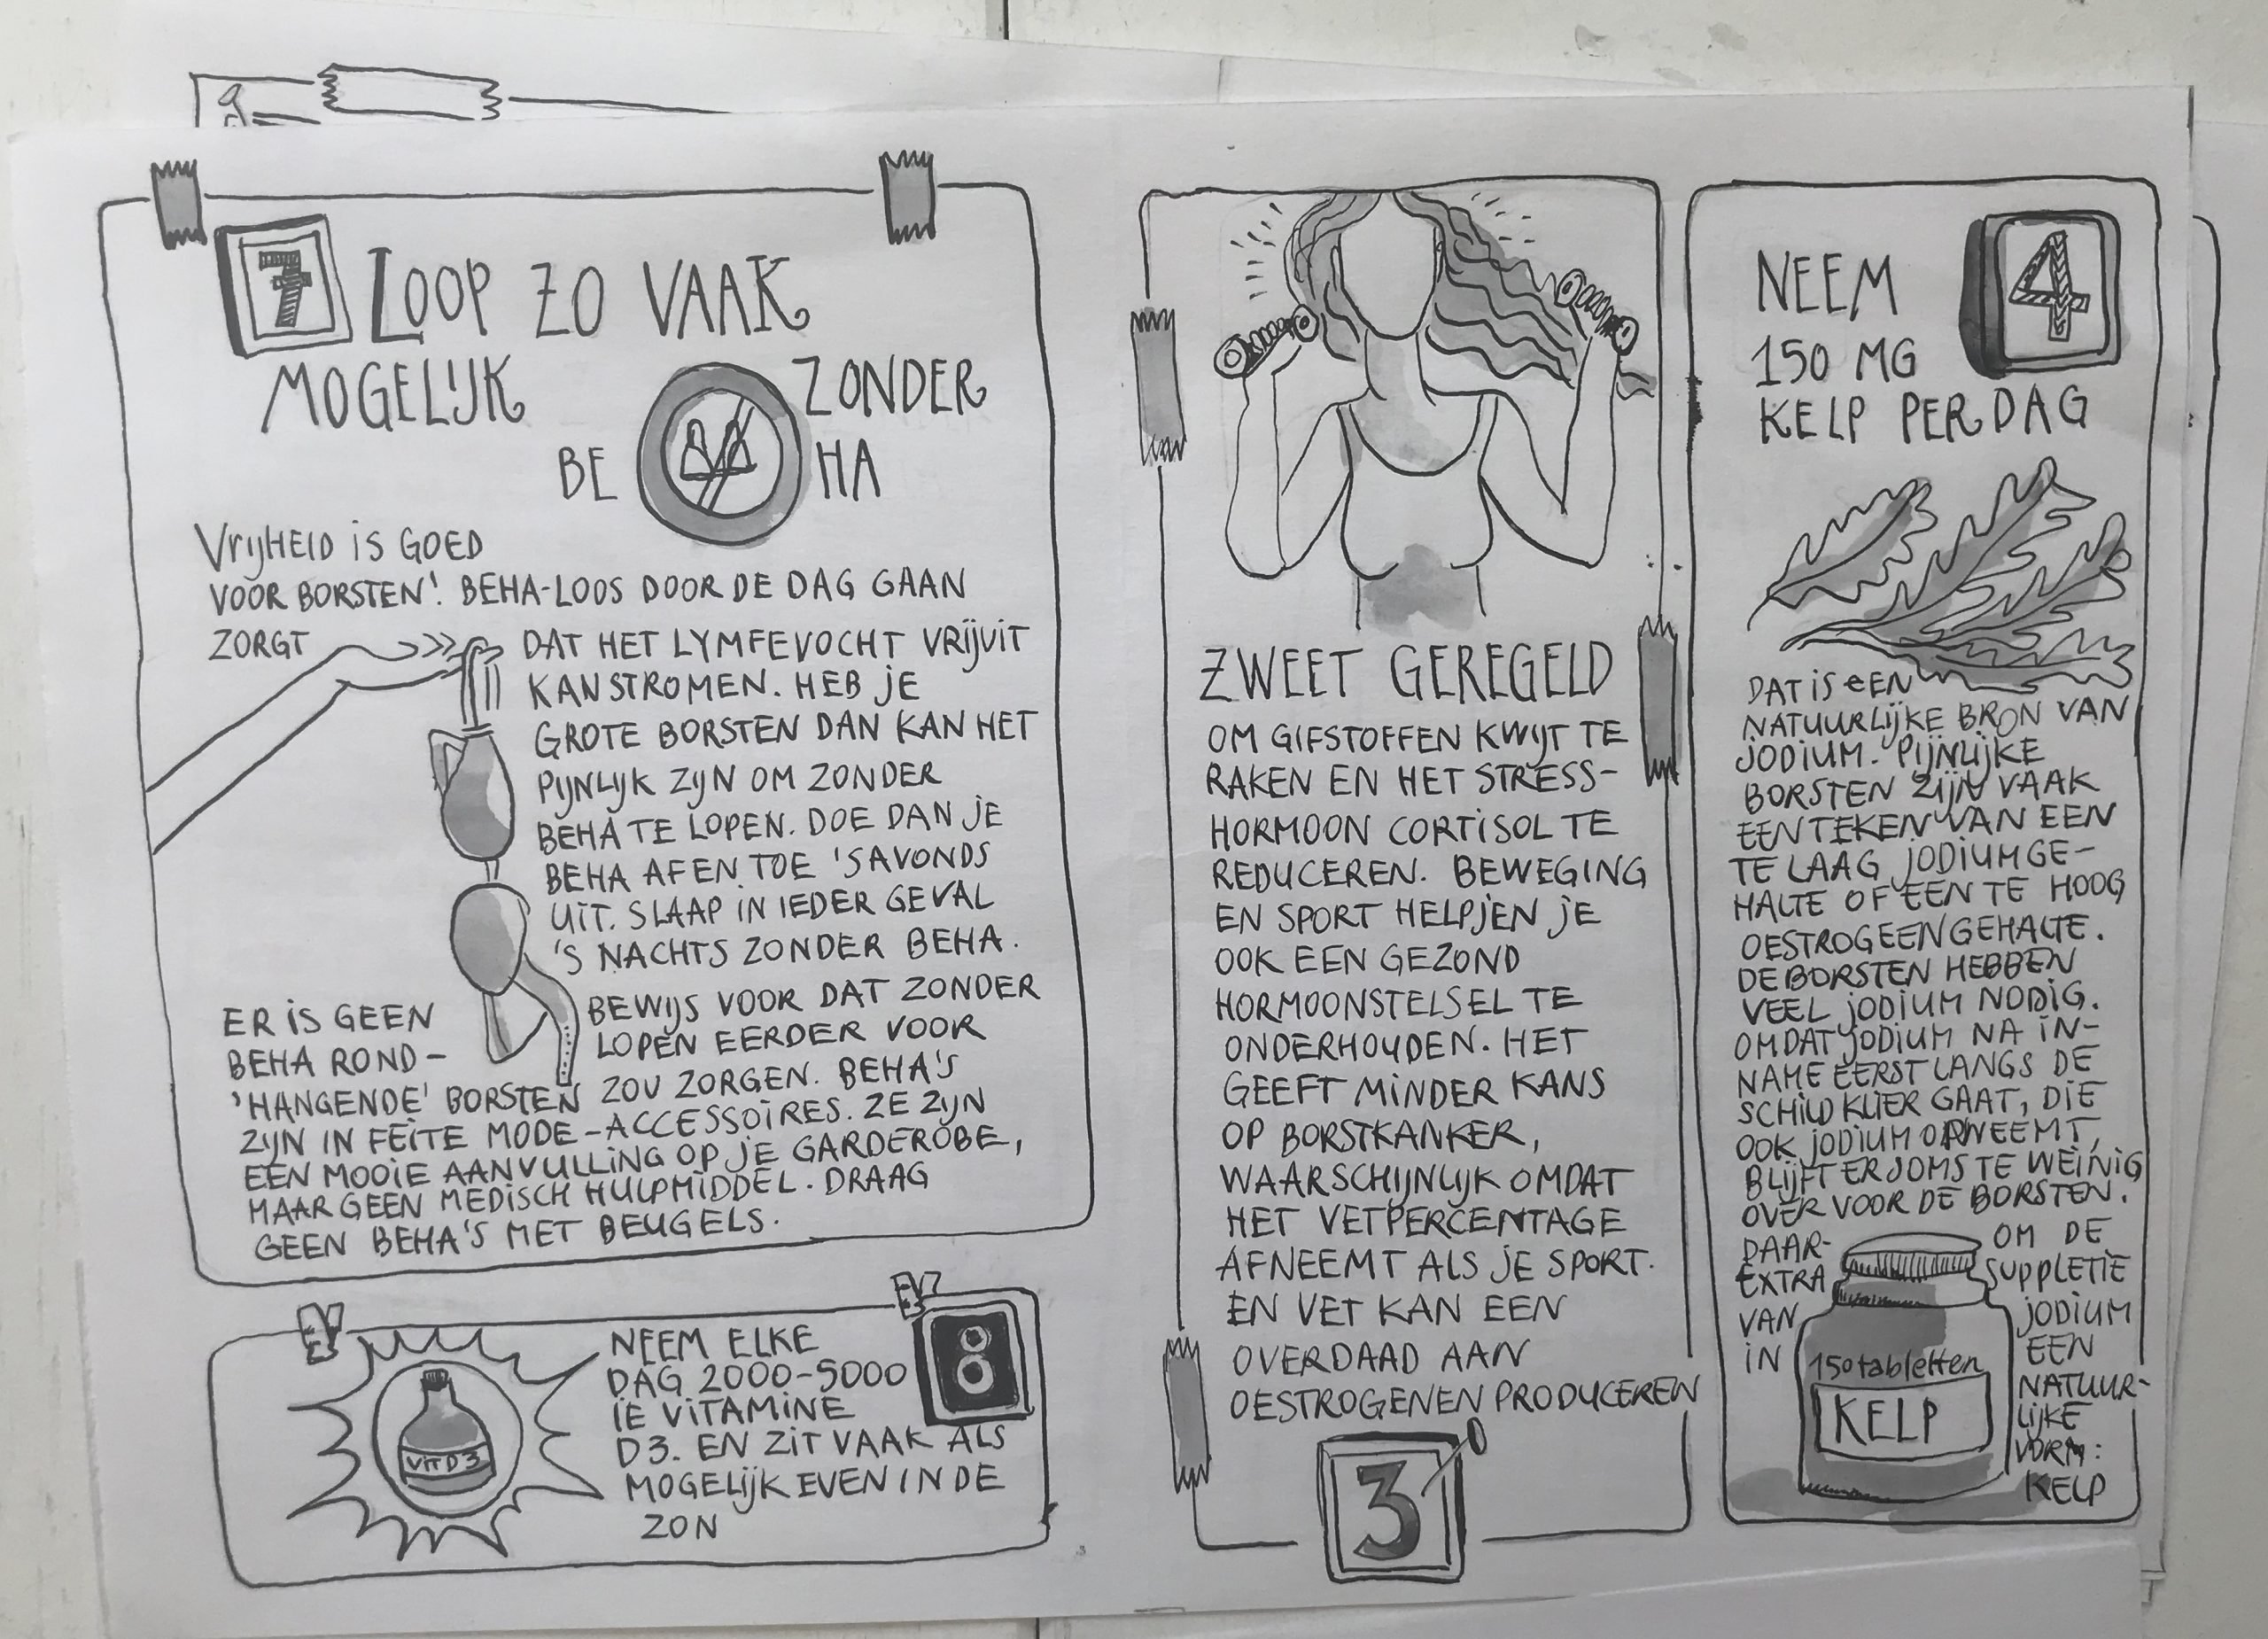 7 LOOP ZO VAAK
MOGELIJK ZONDER
BE HA
VRIJHEID IS GOED
VOOR BORSTEN! BEHA-LOOS DOOR DE DAG GAAN
ZORGT DAT HET LYMFEVOCHT VRIJUIT
KAN STROMEN. HEB JE
GROTE BORSTEN DAN KAN HET
PIJNLIJK ZIJN OM ZONDER
BEHA TE LOPEN. DOE DAN JE
BEHA AF EN TOE 'S AVONDS
UIT. SLAAP IN IEDER GEVAL
'S NACHTS ZONDER BEHA.
ER IS GEEN BEWIJS VOOR DAT ZONDER
BEHA ROND- LOPEN EERDER VOOR
'HANGENDE' BORSTEN ZOU ZORGEN. BEHA'S
ZIJN IN FEITE MODE-ACCESSOIRES. ZE ZIJN
EEN MOOIE AANVULLING OP JE GARDEROBE,
MAAR GEEN MEDISCH HULPMIDDEL. DRAAG
GEEN BEHA'S MET BEUGELS.
NEEM ELKE
DAG 2000-5000
IE VITAMINE
D3. EN ZIT VAAK ALS
MOGELIJK EVEN IN DE
ZON
8
VIT D3
ZWEET GEREGELD
OM GIFSTOFFEN KWIJT TE
RAKEN EN HET STRESS-
HORMOON CORTISOL TE
REDUCEREN. BEWEGING
EN SPORT HELPJEN JE
OOK EEN GEZOND
HORMOONSTELSEL TE
ONDERHOUDEN. HET
GEEFT MINDER KANS
OP BORSTKANKER,
WAARSCHIJNLIJK OMDAT
HET VETPERCENTAGE
AFNEEMT ALS JE SPORT.
EN VET KAN EEN
OVERDAAD AAN
OESTROGENEN PRODUCEREN
3
NEEM 4
150 MG
KELP PER DAG
DAT IS EEN
NATUURLIJKE BRON VAN
JODIUM. PIJNLIJKE
BORSTEN ZIJN VAAK
EEN TEKEN VAN EEN
TE LAAG JODIUMGE-
HALTE OF EEN TE HOOG
OESTROGEENGEHALTE.
DE BORSTEN HEBBEN
VEEL JODIUM NODIG.
OMDAT JODIUM NA IN-
NAME EERST LANGS DE
SCHILDKLIER GAAT, DIE
OOK JODIUM OPNEEMT,
BLIJFT ER SOMS TE WEINIG
OVER VOOR DE BORSTEN.
DAAR- OM DE
EXTRA SUPPLETIE
VAN JODIUM
IN EEN
NATUUR-
LIJKE
VORM:
KELP
150 tabletten
KELP